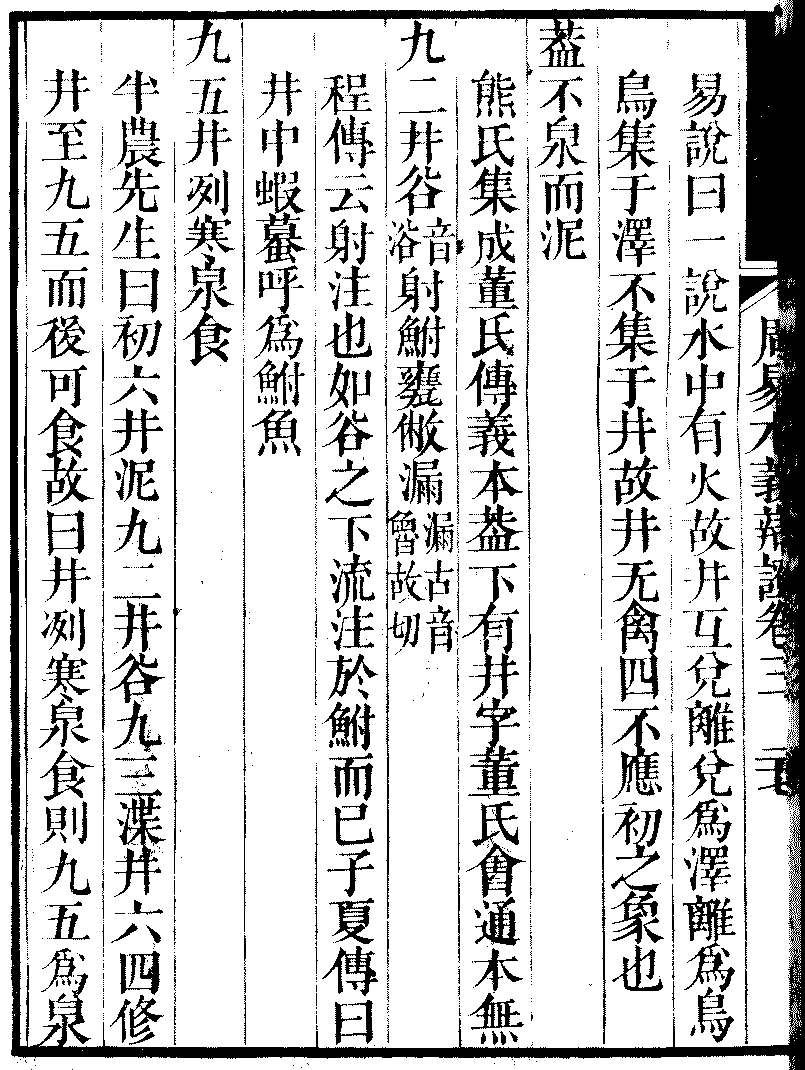 周易本義辯證卷三
易說曰一說水中有火故井互兌離兌爲澤離爲鳥
鳥集于澤不集于井故井无禽四不應初之象也
葢不泉而泥
熊氏集成董氏傳義本葢下有井字董氏會通本無
九二井谷音浴射鮒甕敝漏漏古音魯故切
程傳云射注也如谷之下流注於鮒而已子夏傳曰
井中蝦蟇呼爲鮒魚
九五井冽寒泉食
半農先生曰初六井泥九二井谷九三渫井六四修
井至九五而後可食故曰井冽寒泉食則九五爲泉